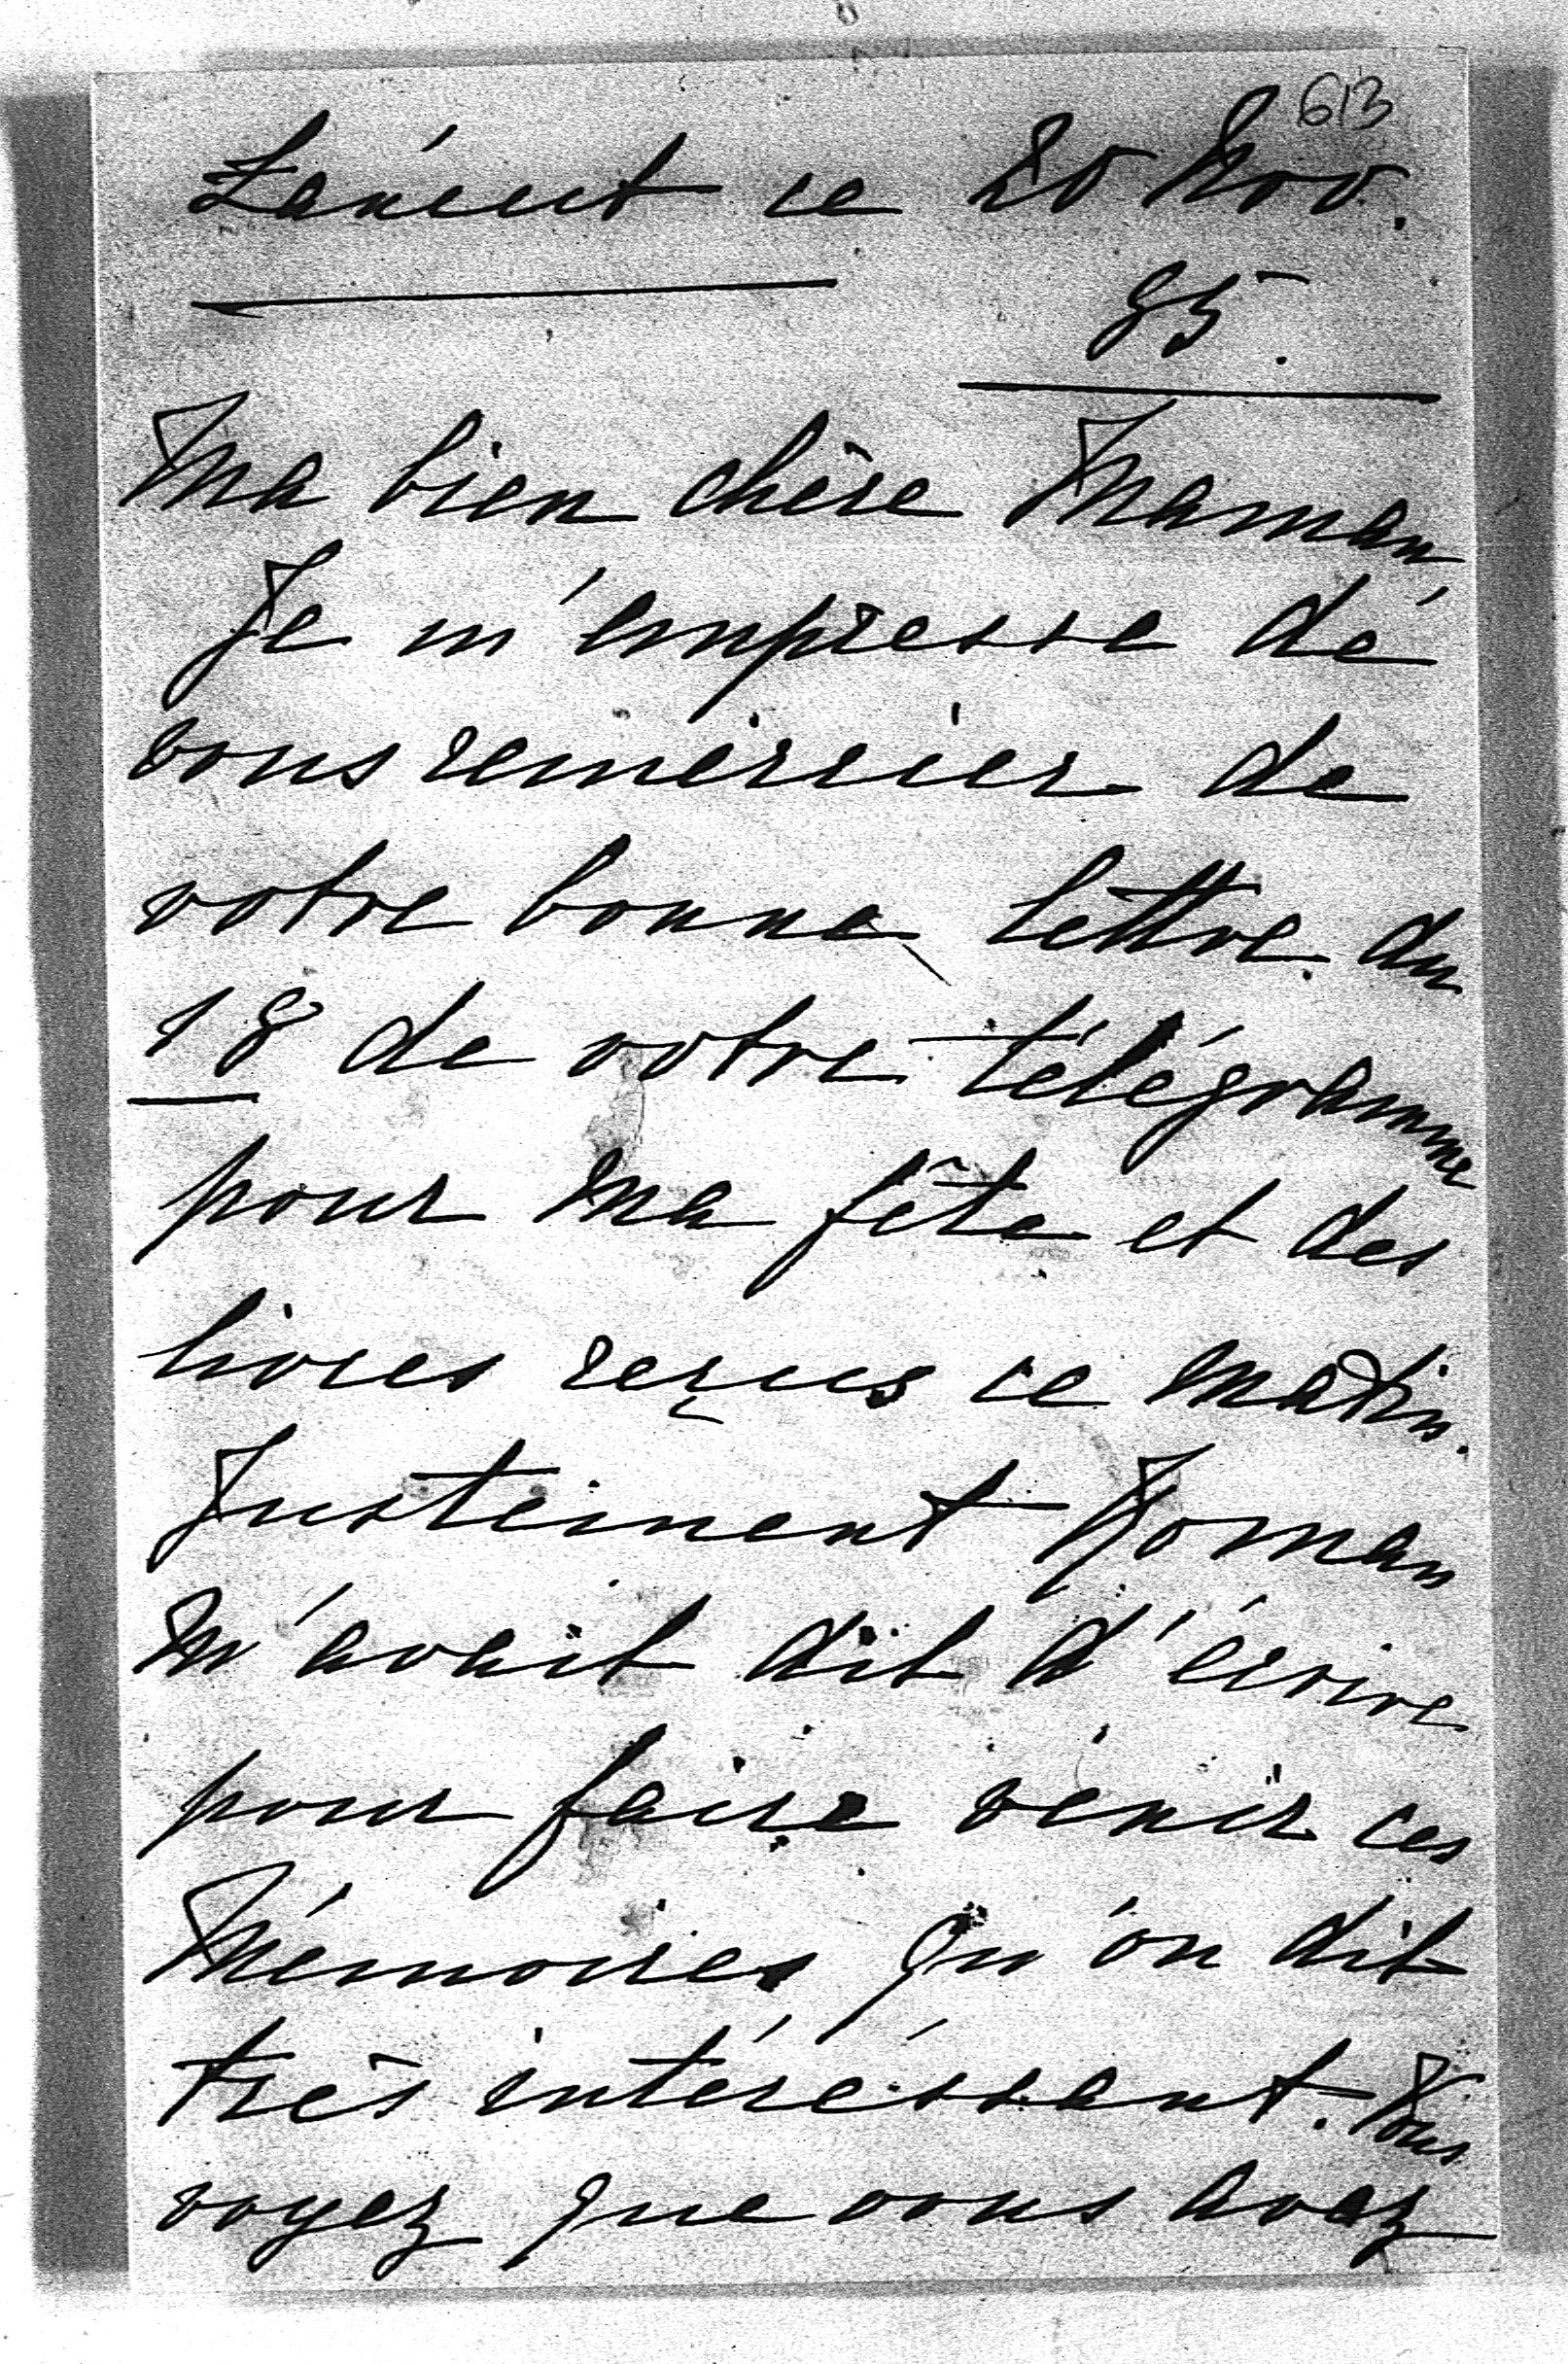 613
Lancut ce 20 Nov.
85.
Ma bien chère Maman
Je m'empresse de
vous remercier de
votre bonne lettre du
18 de votre télégramme
pour ma fête et des
livres reçus ce matin.
Justement Roman
m'avait dit d'écrire
pour faire venir ces
Mémoires qu'on dit
très intéressant. Vous
voyez que vous avez